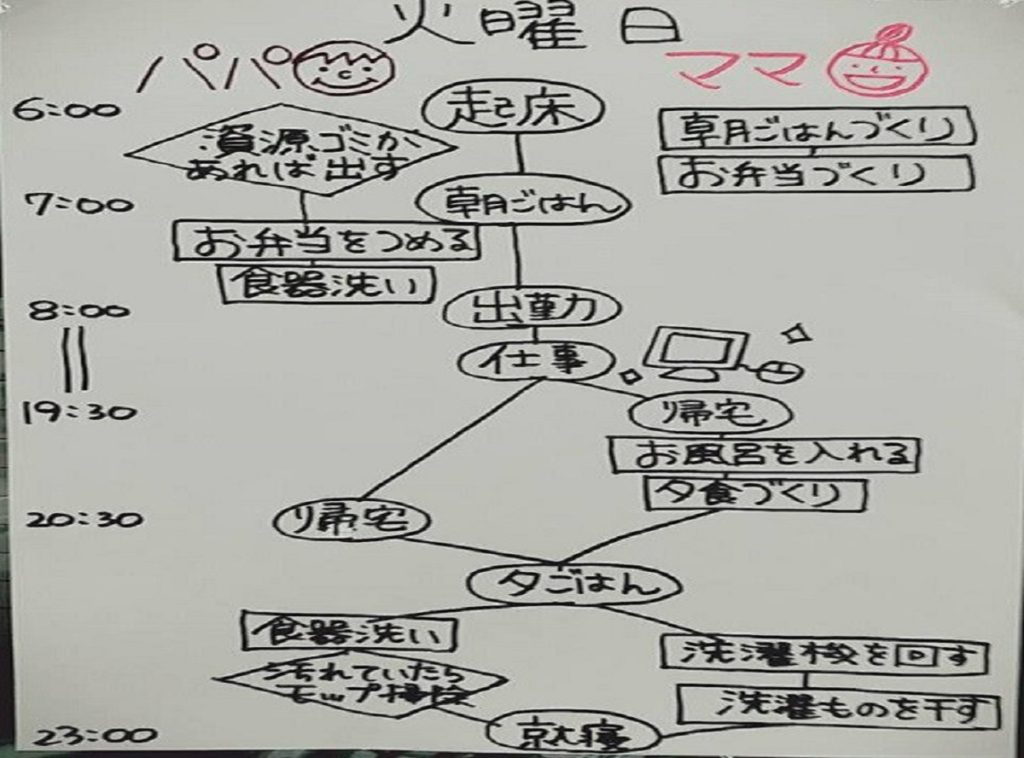 火曜日
パパ
ママ
6:00
起床
資源ゴミが
あれば出す
朝ごはんづくり
お弁当づくり
7:00
朝ごはん
お弁当をつめる
食器洗い
8:00
出勤
仕事
19:30
帰宅
お風呂を入れる
夕食づくり
20:30
帰宅
夕ごはん
食器洗い
汚れていたら
モップ掃除
洗濯機を回す
洗濯ものを干す
23:00
就寝